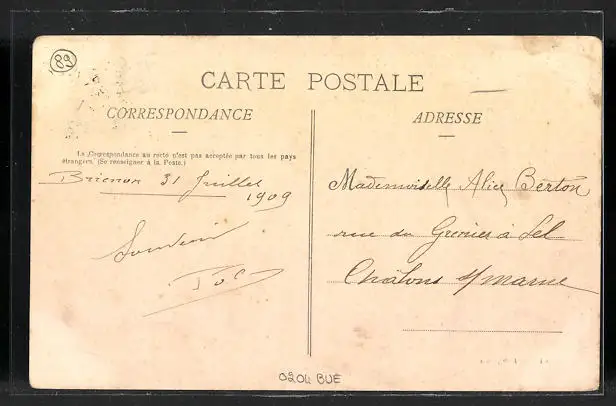 89
CARTE POSTALE
CORRESPONDANCE
ADRESSE
La Correspondance au recto n'est pas acceptée par tous les pays
étrangers. (Se renseigner à la Poste.)
Brienon 31 Juillet
1909
Souvenir
Mademoiselle Alice Berton
rue du Grenier à Sel
Châlons s/marne
0204 BUE